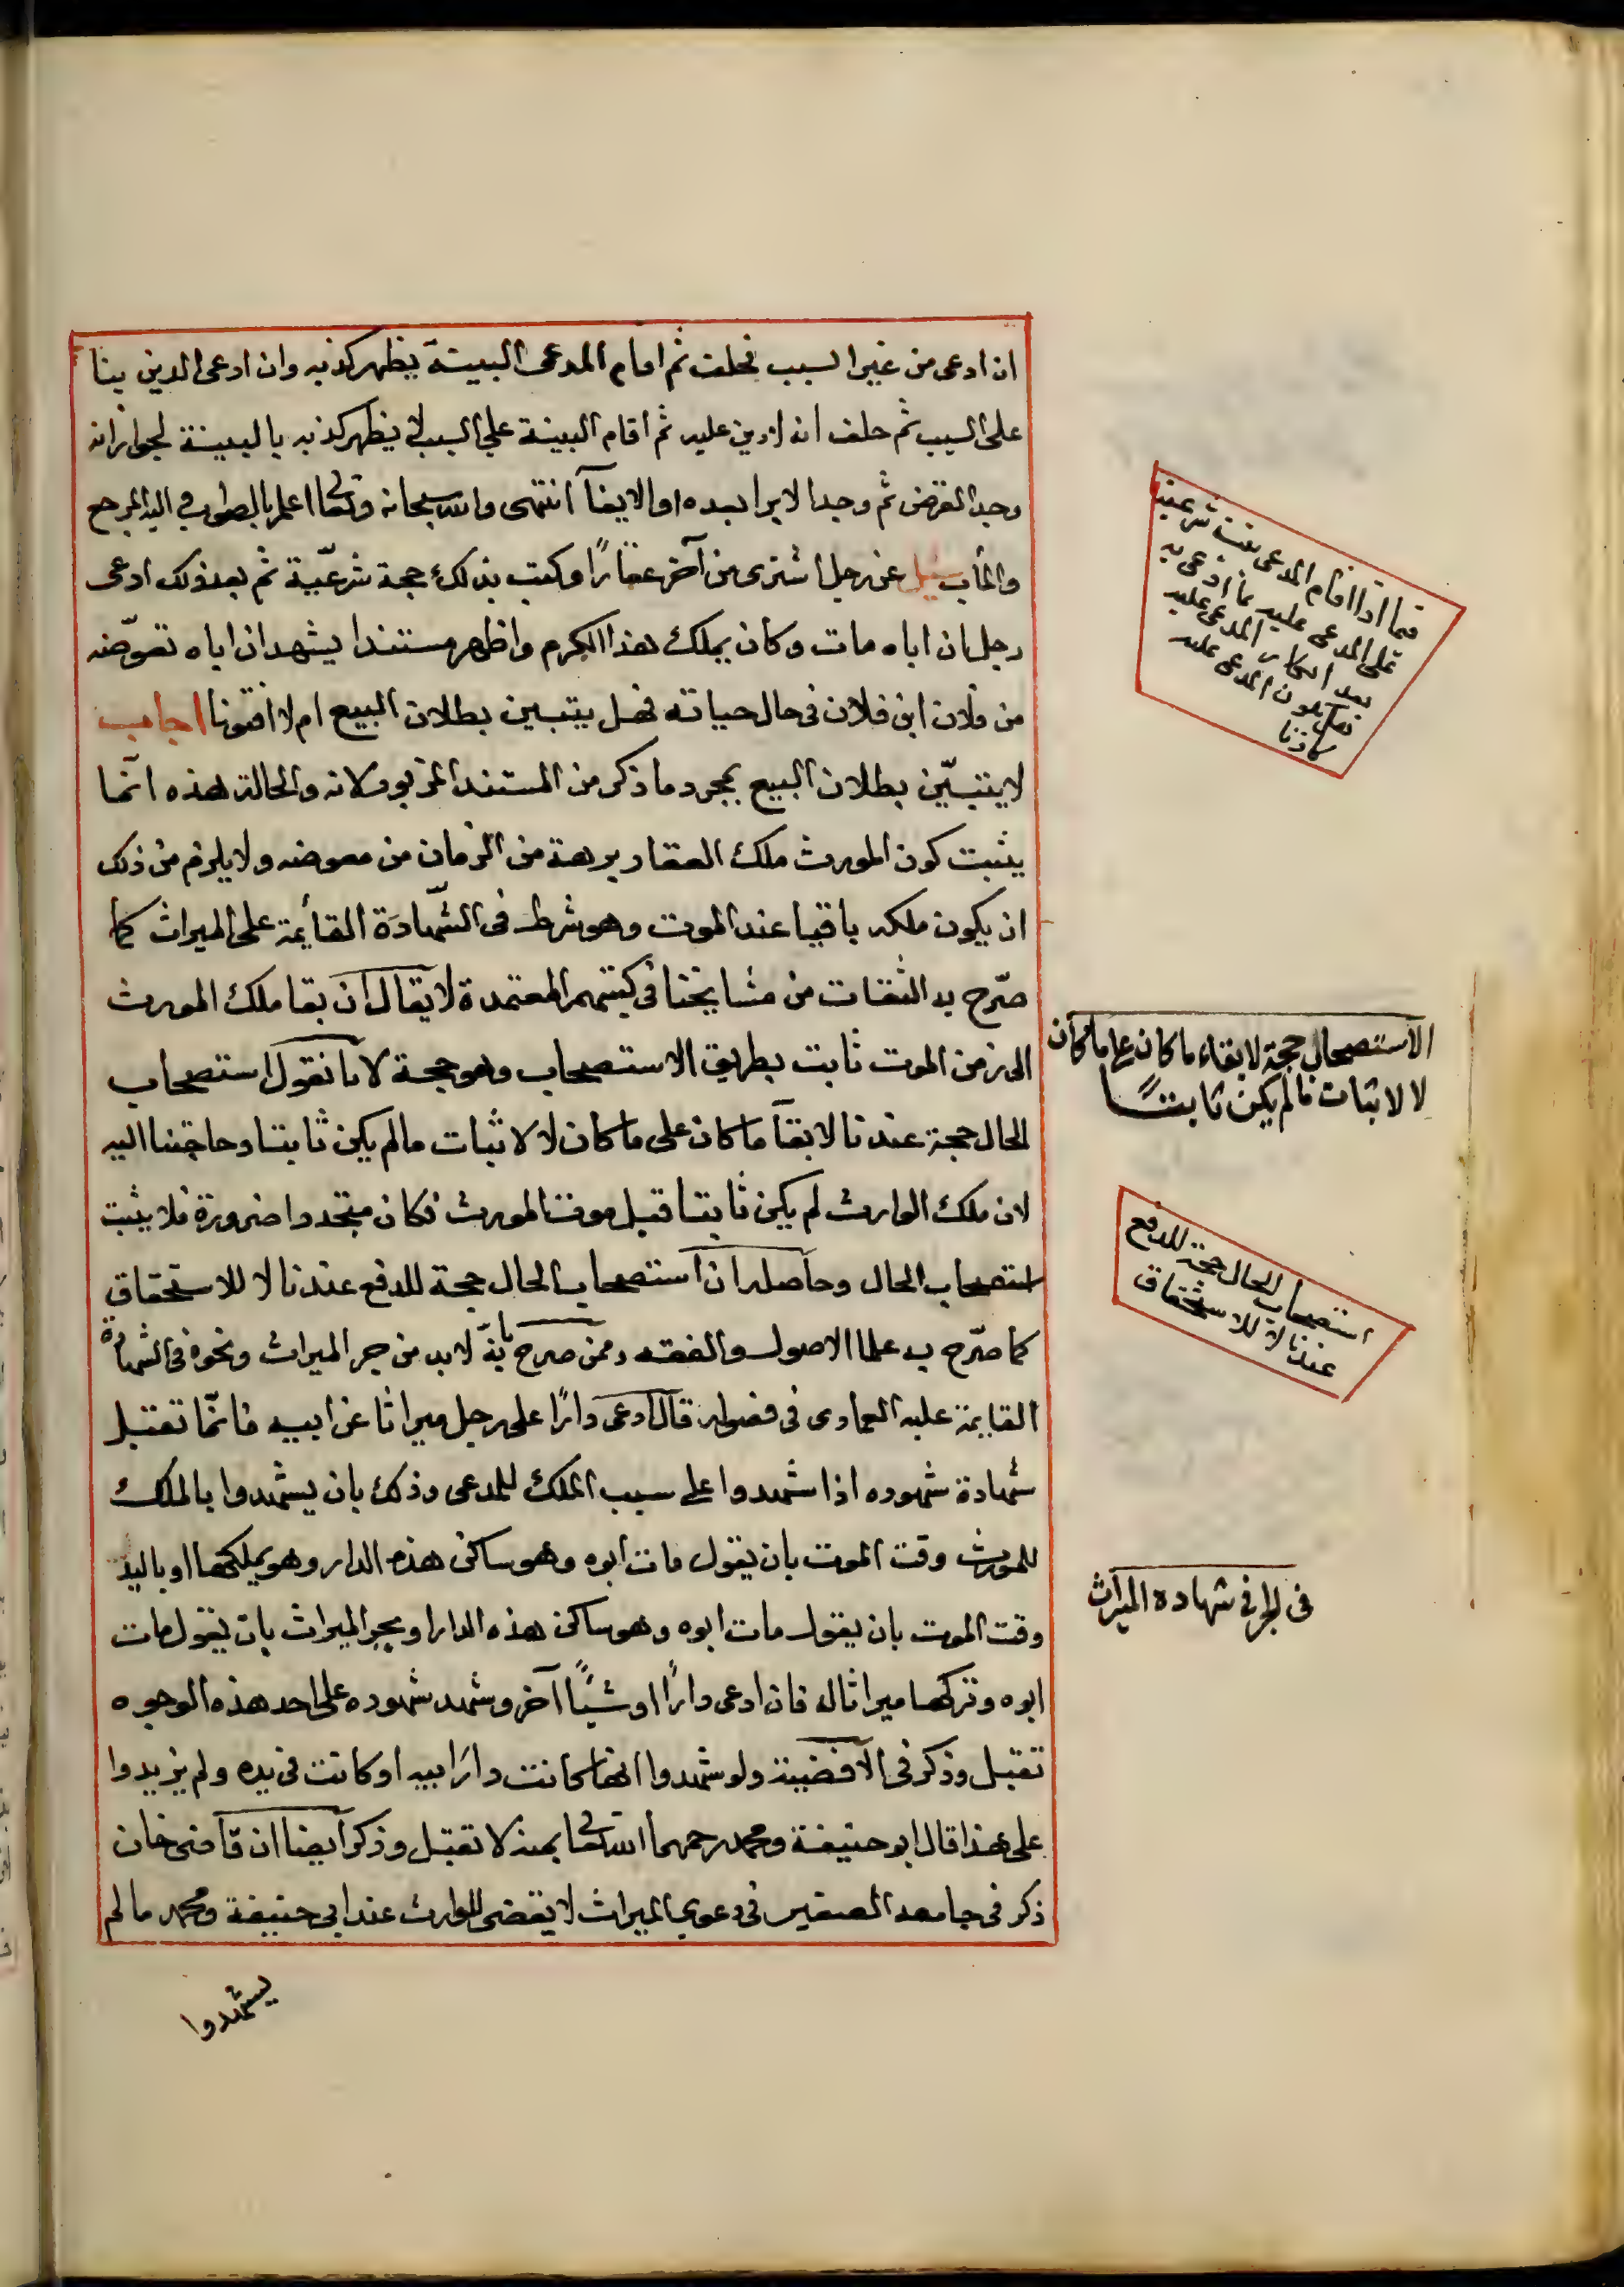 ان ادعى من غير السبب فحلف ثم اقام المدعى البينة يظهر كذبه وان ادعى الدين بنا
على السبب ثم حلف انه لا دين عليه ثم اقام البينة على السبب لا يظهر كذبه بالبينة لجواز انه
وجد القرض ثم وجد الابرا بعده او الايفآ انتهى والله سبحانه وتعالى اعلم بالصواب واليه المرجع
والمآب سئل عن رجل اشترى من آخر عقارًا وكتب بذلك حجة شرعيّة ثم بعد ذلك ادعى
رجل ان اباه مات وكان يملك هذا الكرم واظهر مستندا يشهد ان اباه تعوّضه
من فلان ابن فلان فى حال حياته فهل يتبين بطلان البيع ام لا افتونا اجاب
لا يتبيّن بطلان البيع بمجرد ما ذكر من المستند المزبور لانه والحالة هذه انّما
يثبت كون المورث ملك العقار برهة من الزمان من معوضه ولا يلزم من ذلك
ان يكون ملكه باقيا عند الموت وهو شرط فى الشّهادَة القائمة على الميراث كما
صرّح به الثقات من مشايخنا فى كتبهم المعتمدة لا يقال ان بقا ملك المورث
الى زمن الموت ثابت بطريق الاستصحاب وهو حجة لانا نقول استصحاب
الحال حجة عندنا لابقآ ما كان على ما كان لا لاثبات مالم يكن ثابتا وحاجتنا اليه
لان ملك الوارث لم يكن ثابتا قبل موت المورث فكان متجددا ضرورة فلا يثبت
استصحاب الحال وحاصله ان استصحاب الحال حجة للدفع عندنا لا للاستحقاق
كما صرّح به علما الاصول والفقه وممن صرح بانّه لابد من جر الميراث ونحوه فى الشهادة
القايمة عليه العمادى فى فصوله قال ادعى دارًا على رجل ميراثا عن ابيه فانّما تقبل
شهادة شهوده اذا شهدوا على سبب الملك للمدعى وذلك بان يشهدوا بالملك
للمورث وقت الموت بان يقول مات ابوه وهو ساكن هذه الدار وهو يملكها او باليد
وقت الموت بان يقول مات ابوه وهو ساكن هذه الدار او بجر الميراث بان يقول مات
ابوه وتركها ميراثا له فان ادعى دارًا او شئًا آخر وشهد شهوده على احد هذه الوجوه
تقبل وذكر فى الاقضية ولو شهدوا انها كانت دار ابيه او كانت فى يده ولم يزيدوا
على هذا قال ابو حنيفة ومحمد رحمهما الله تعالى بمنه لا تقبل وذكر ايضا ان قاضى خان
ذكر فى جامعه الصغير فى دعوى الميراث لا يقضى للوارث عند ابى حنيفة ومحمد مالم
يشهدوا
فيما اذا اقام المدعى بينة شرعية
على المدعى عليه بما ادعى به
بعد انكار المدعى عليه
فهل يكون المدعى عليه
كاذبا
الاستصحاب حجة لابقاء ما كان على ما كان
لا لاثبات مالم يكن ثابتًا
استصحاب الحال حجة للدفع
عندنا لا للاستحقاق
فى الجر فى شهادة الميراث